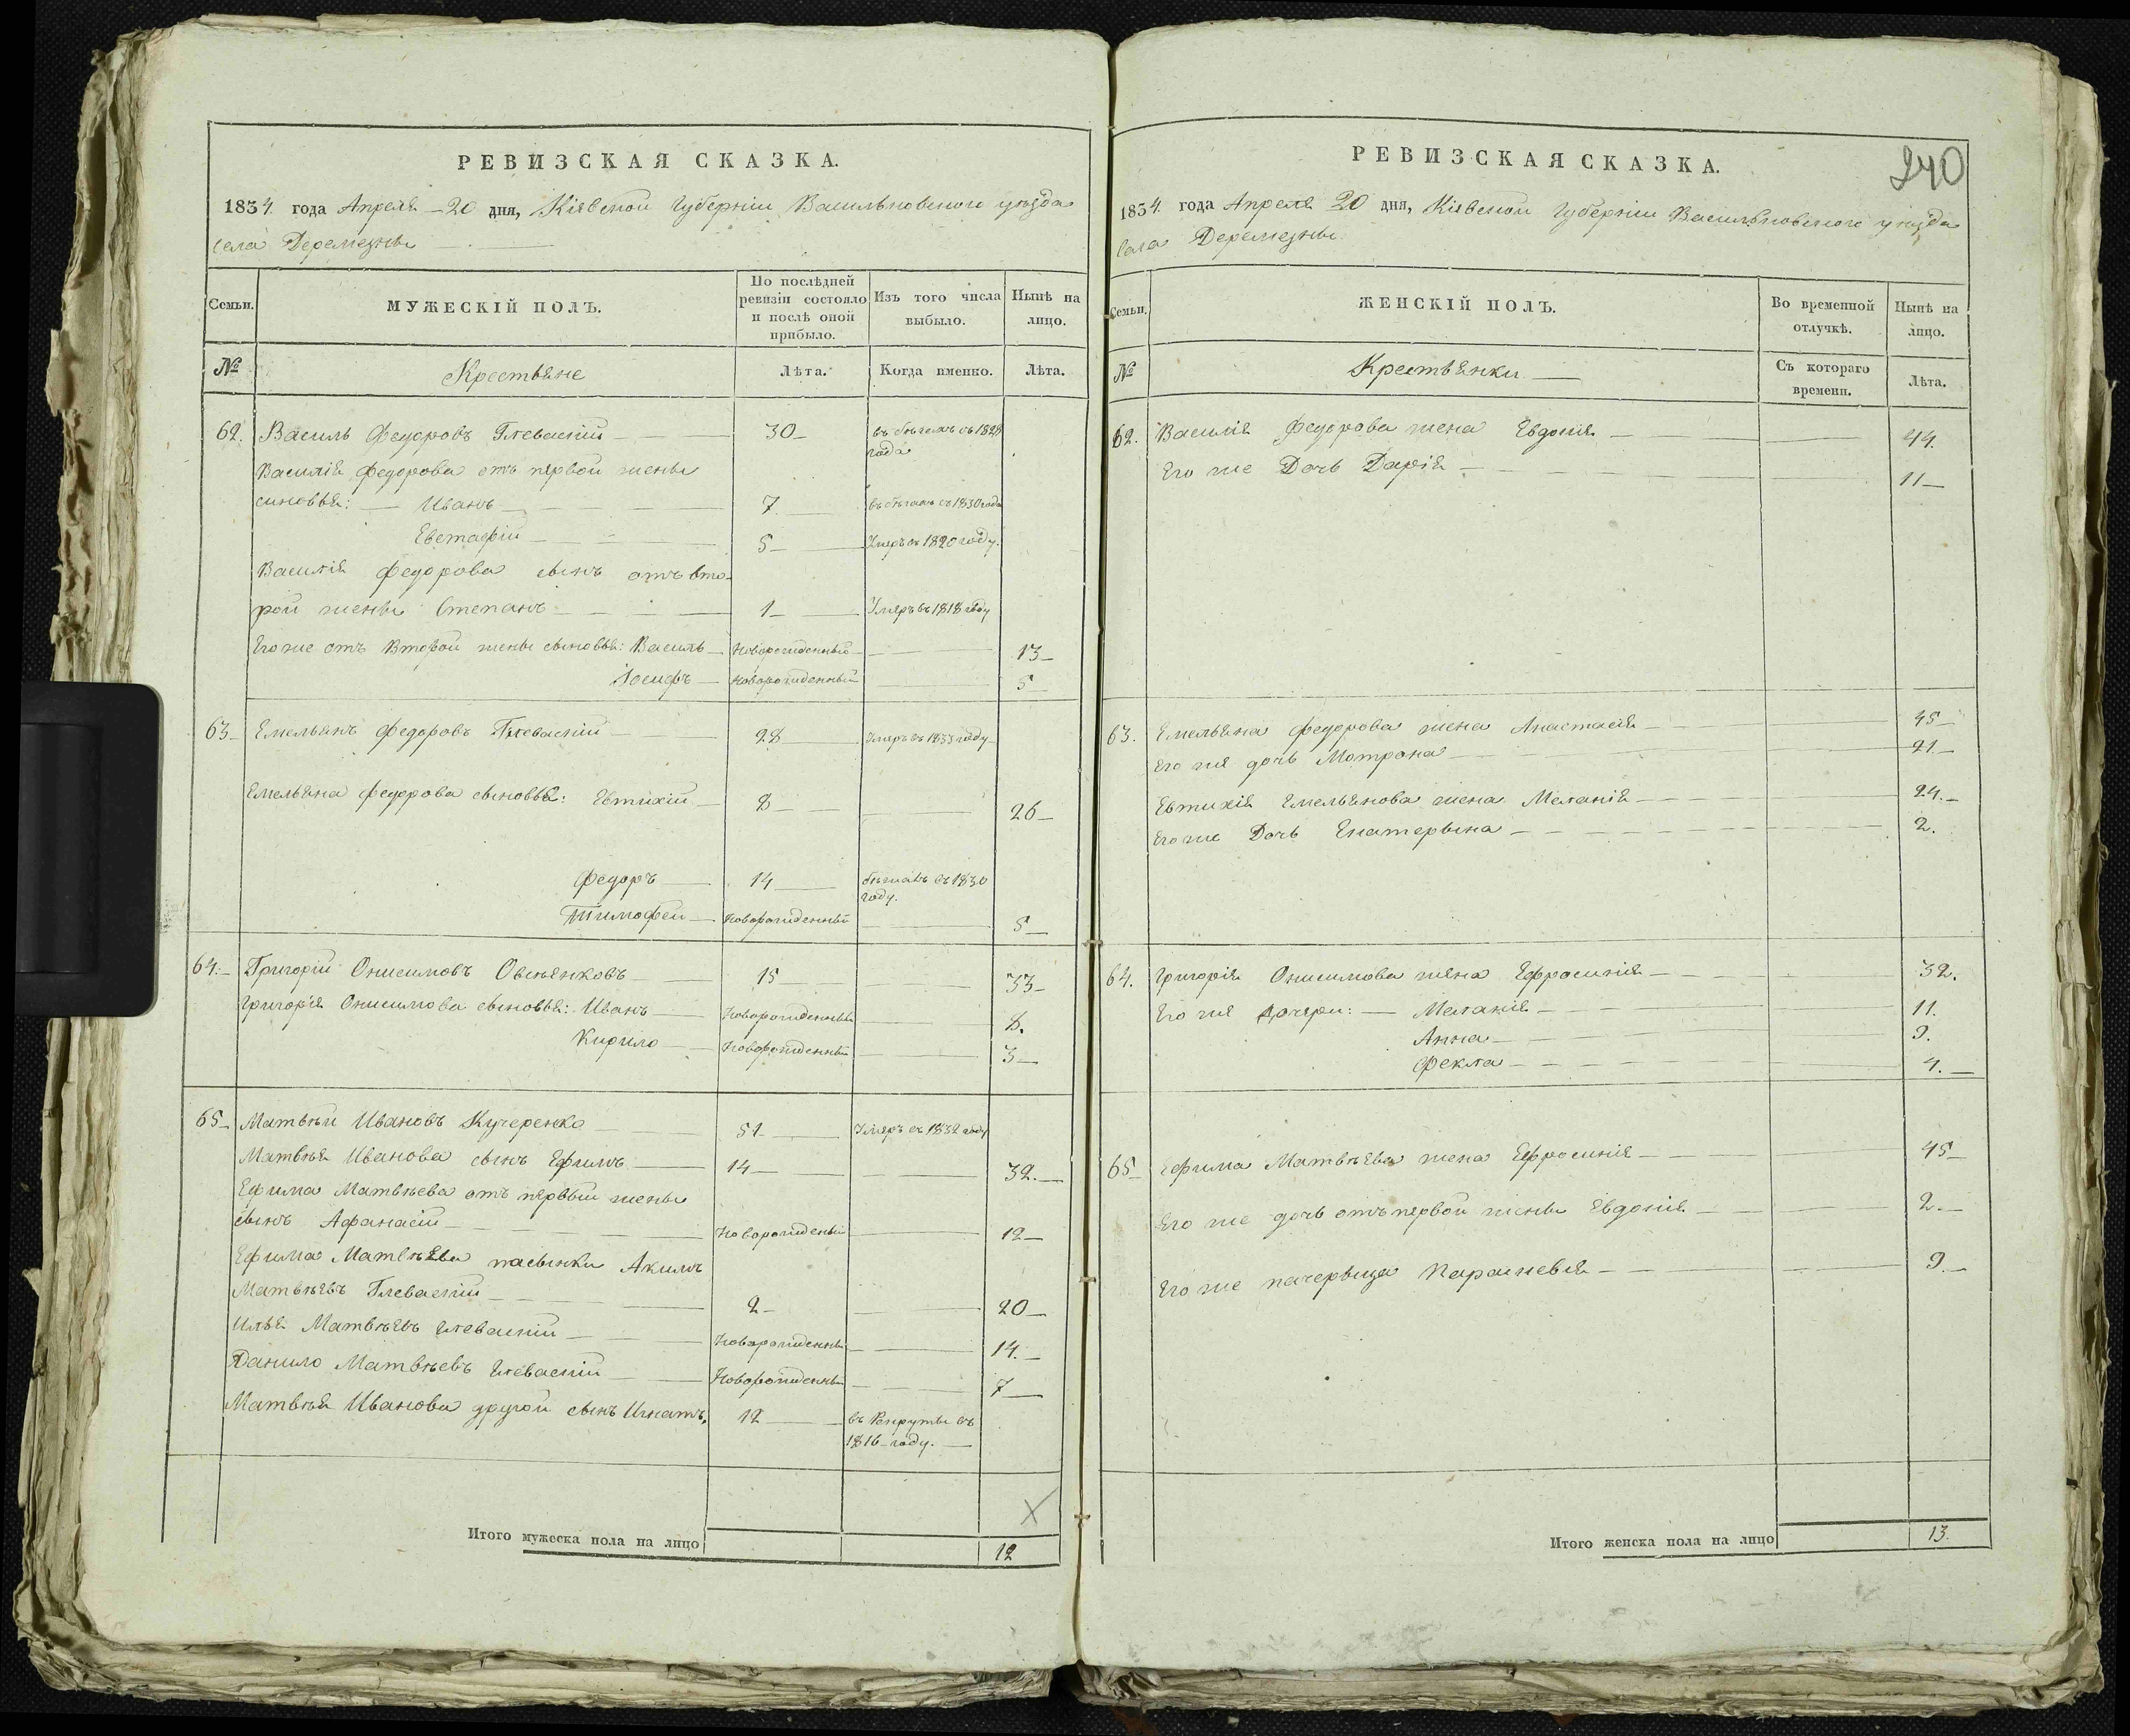 РЕВИЗСКАЯ СКАЗКА.
1834. года Апреля 20 дня, Кіевской Губерніи Васильковского уѣзда
села Деремезны
Семьи. МУЖЕСКІЙ ПОЛЪ. По послѣдней ревизіи состояло и послѣ оной прибыло. Изъ того числа выбыло. Нынѣ на лицо.
№ Крестьяне Лѣта. Когда именно. Лѣта.
62. Василь Федоровъ Глеваскій 30 въ бѣгахъ съ 1828 года
Василія Федорова отъ первой жены
синовья: Иванъ 7 въ бѣгахъ съ 1830 года
Евстафій 5 Умеръ въ 1820 году.
Василія Федорова сынъ отъ вто-
рой жены Степанъ 1 Умеръ въ 1818 году
Его же отъ второй жены сыновья: Василь Новорожденный 13
Іосифъ новорожденный 5
63 Емельянъ Федоровъ Глеваскій 28 Умеръ въ 1833 году
Емельяна Федорова сыновья: Евтихій 8 26
Федоръ 14 бѣжавъ въ 1830 году.
Тимофей новорожденный 5
64. Григорій Онисимовъ Овсѣенковъ 15 33
Григорія Онисимова сыновья: Иванъ Новорожденный 8.
Кирило Новорожденный 3
65 Матвѣй Ивановъ Кучеренко 51 Умеръ въ 1832 году
Матвѣя Иванова сынъ Ефимъ 14 32.
Ефима Матвѣева отъ первый жены
сынъ Афанасій Новорожденый 12
Ефима Матвѣева пасынки Акимъ
Матвѣевъ Глеваскій 2 20
Илья Матвѣевъ Глеваскій Новорожденный 14.
Данило Матвѣевъ Глеваскій Новорожденный 7
Матвѣя Иванова другой сынъ Игнатъ, 12 въ Рекруты въ 1816 году.
Итого мужеска пола на лицо 12
240
РЕВИЗСКАЯ СКАЗКА.
1834. года Апреля 20 дня, Кіевской Губерніи Васильковского уѣзда
села Деремезны
Семьи. ЖЕНСКІЙ ПОЛЪ. Во временной отлучкѣ. Нынѣ на лицо.
№ Крестьянки Съ котораго времени. Лѣта.
62. Василія Федорова жена Евдокія 44.
Его же Дочь Дарія 11
63. Емельяна Федорова жена Анастасія 45
Его же дочь Мотрона 21.
Евтихія Емельянова жена Меланія 24.
Его же Дочь Екатерына 2.
64. Григорія Онисимова жена Ефросинія 32.
Его же дочери: Меланія 11.
Анна 9.
Фекла 4.
65 Ефима Матвѣева жена Ефросинія 45
Его же дочь отъ первой жены Евдокія 2.
Его же пачерыца Параскевія 9.
Итого женска пола на лицо 13.